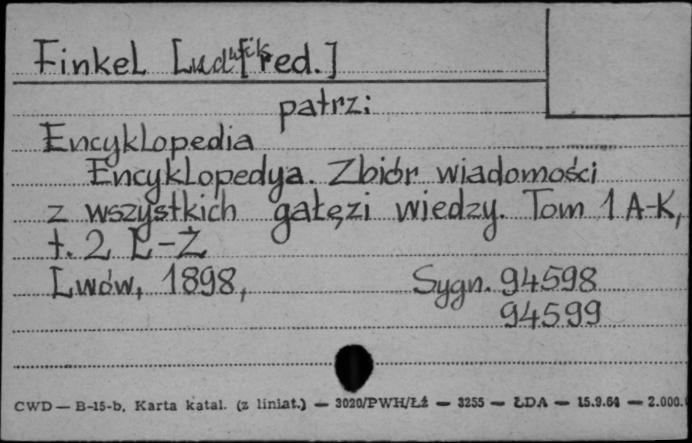 Finkel Ludwik [red.]
patrz:
Encyklopedia
Encyklopedya. Zbiór wiadomości
z wszystkich gałęzi wiedzy. Tom 1 A-K,
t. 2 L-Ż
Lwów, 1898, Sygn. 94598
94599
CWD — B-15-b, Karta katal. (z liniat.) — 3020/PWH/Łż — 3255 — ŁDA — 15.9.64 — 2.000.